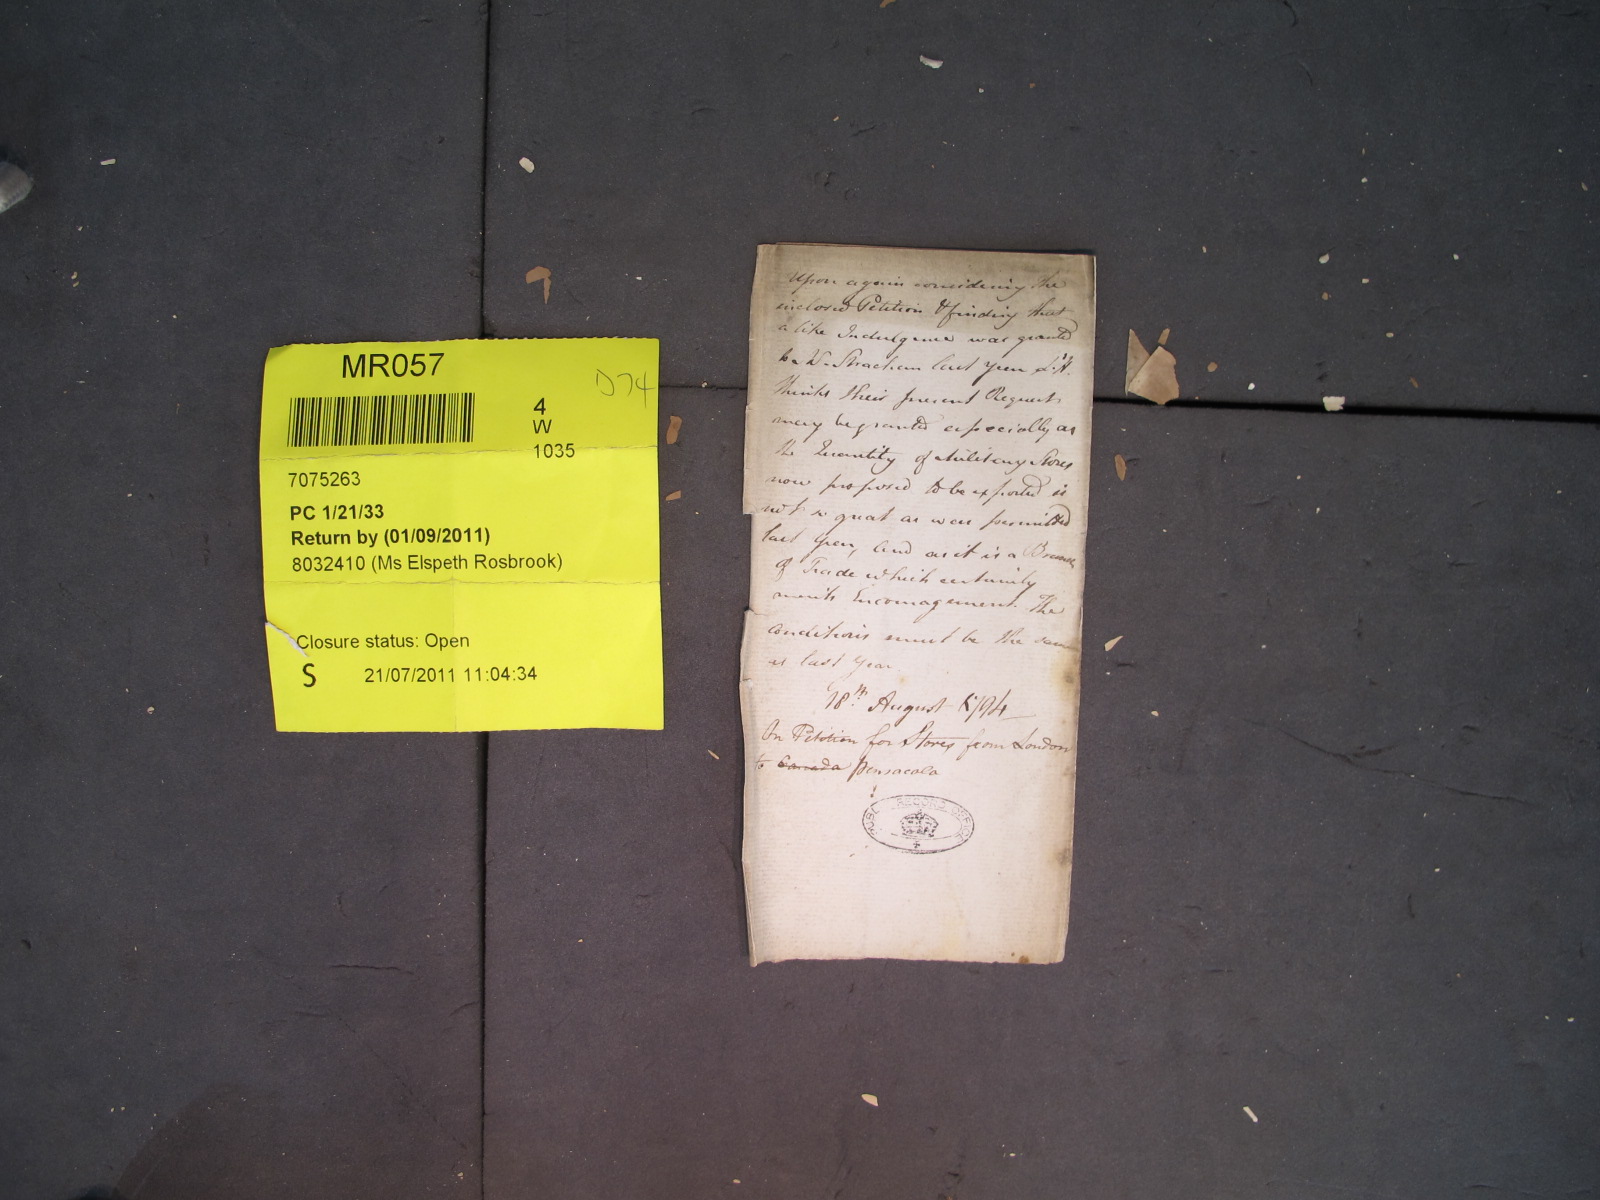 MR057
D74
4
W
1035
7075263
PC 1/21/33
Return by (01/09/2011)
8032410 (Ms Elspeth Rosbrook)
Closure status: Open
S
21/07/2011 11:04:34
Upon again considering the
inclosed Petition & finding that
a like Indulgence was granted
to Strachan last year
thinks their present Request
may be granted especially as
the Quantity of Military Stores
now proposed to be exported is
not so great as was permitted
last year, and as it is a Branch
of Trade which certainly
merits Encouragement. The
conditions must be the same
as last year
18th August 1794
On Petition for Stores from London
to Canada Pensacola
PUBLIC RECORD OFFICE